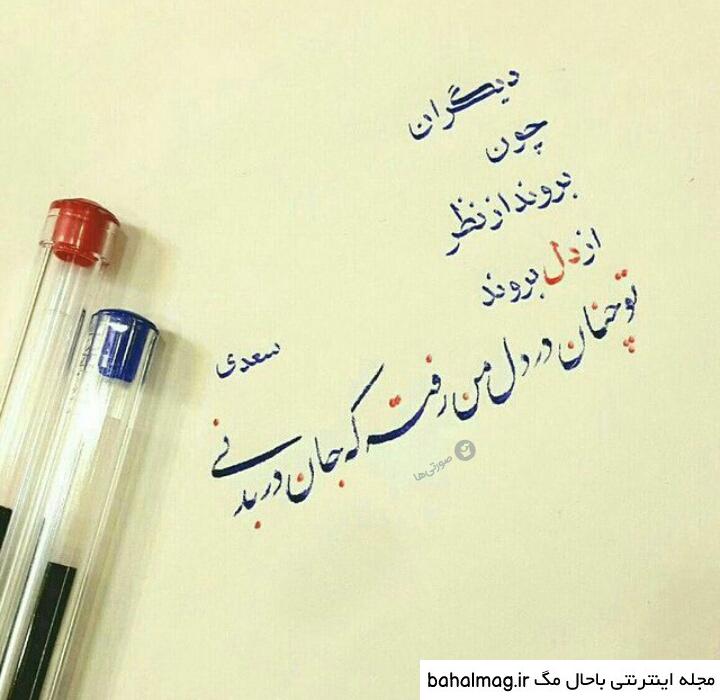 دیگران
چون
بروند از نظر
از دل بروند
تو چنان در دل من رفته که جان در بدنی
سعدی
صورتی‌ها
مجله اینترنتی باحال مگ bahalmag.ir